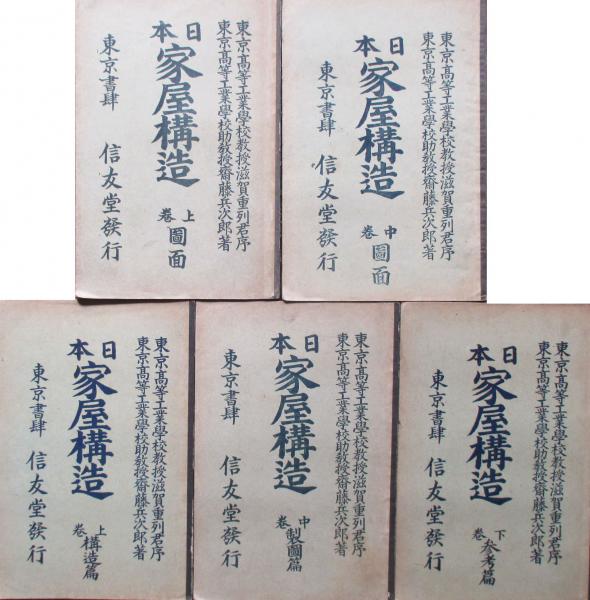 東京高等工業學校教授滋賀重列君序
東京高等工業學校助教授齋藤兵次郎著
日本
家屋構造
上卷
圖面
東京書肆 信友堂發行
東京高等工業學校教授滋賀重列君序
東京高等工業學校助教授齋藤兵次郎著
日本
家屋構造
中卷
圖面
東京書肆 信友堂發行
東京高等工業學校教授滋賀重列君序
東京高等工業學校助教授齋藤兵次郎著
日本
家屋構造
上卷
構造篇
東京書肆 信友堂發行
東京高等工業學校教授滋賀重列君序
東京高等工業學校助教授齋藤兵次郎著
日本
家屋構造
中卷
製圖篇
東京書肆 信友堂發行
東京高等工業學校教授滋賀重列君序
東京高等工業學校助教授齋藤兵次郎著
日本
家屋構造
下卷
参考篇
東京書肆 信友堂發行